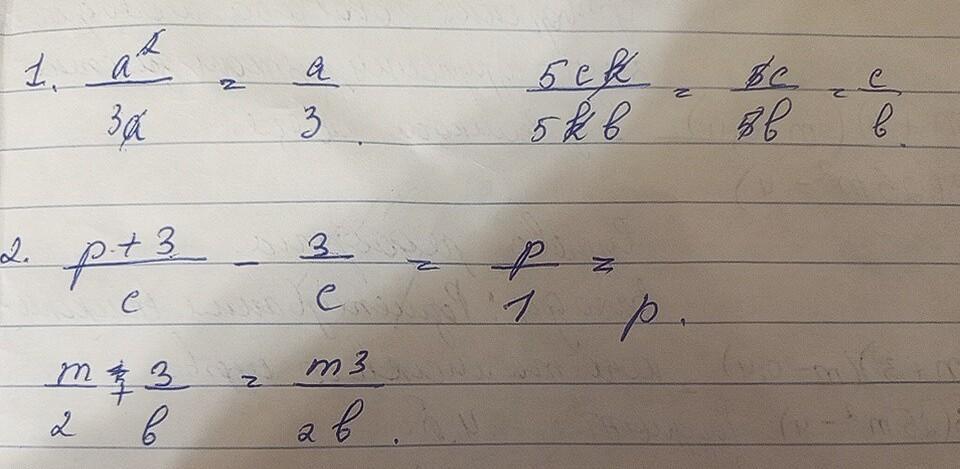 1. a²/3a = a/3. 5ck/5kb = 5c/5b = c/b.
2. (p+3)/c - 3/c = p/1 = p.
m/2 + 3/b = m3/2b.